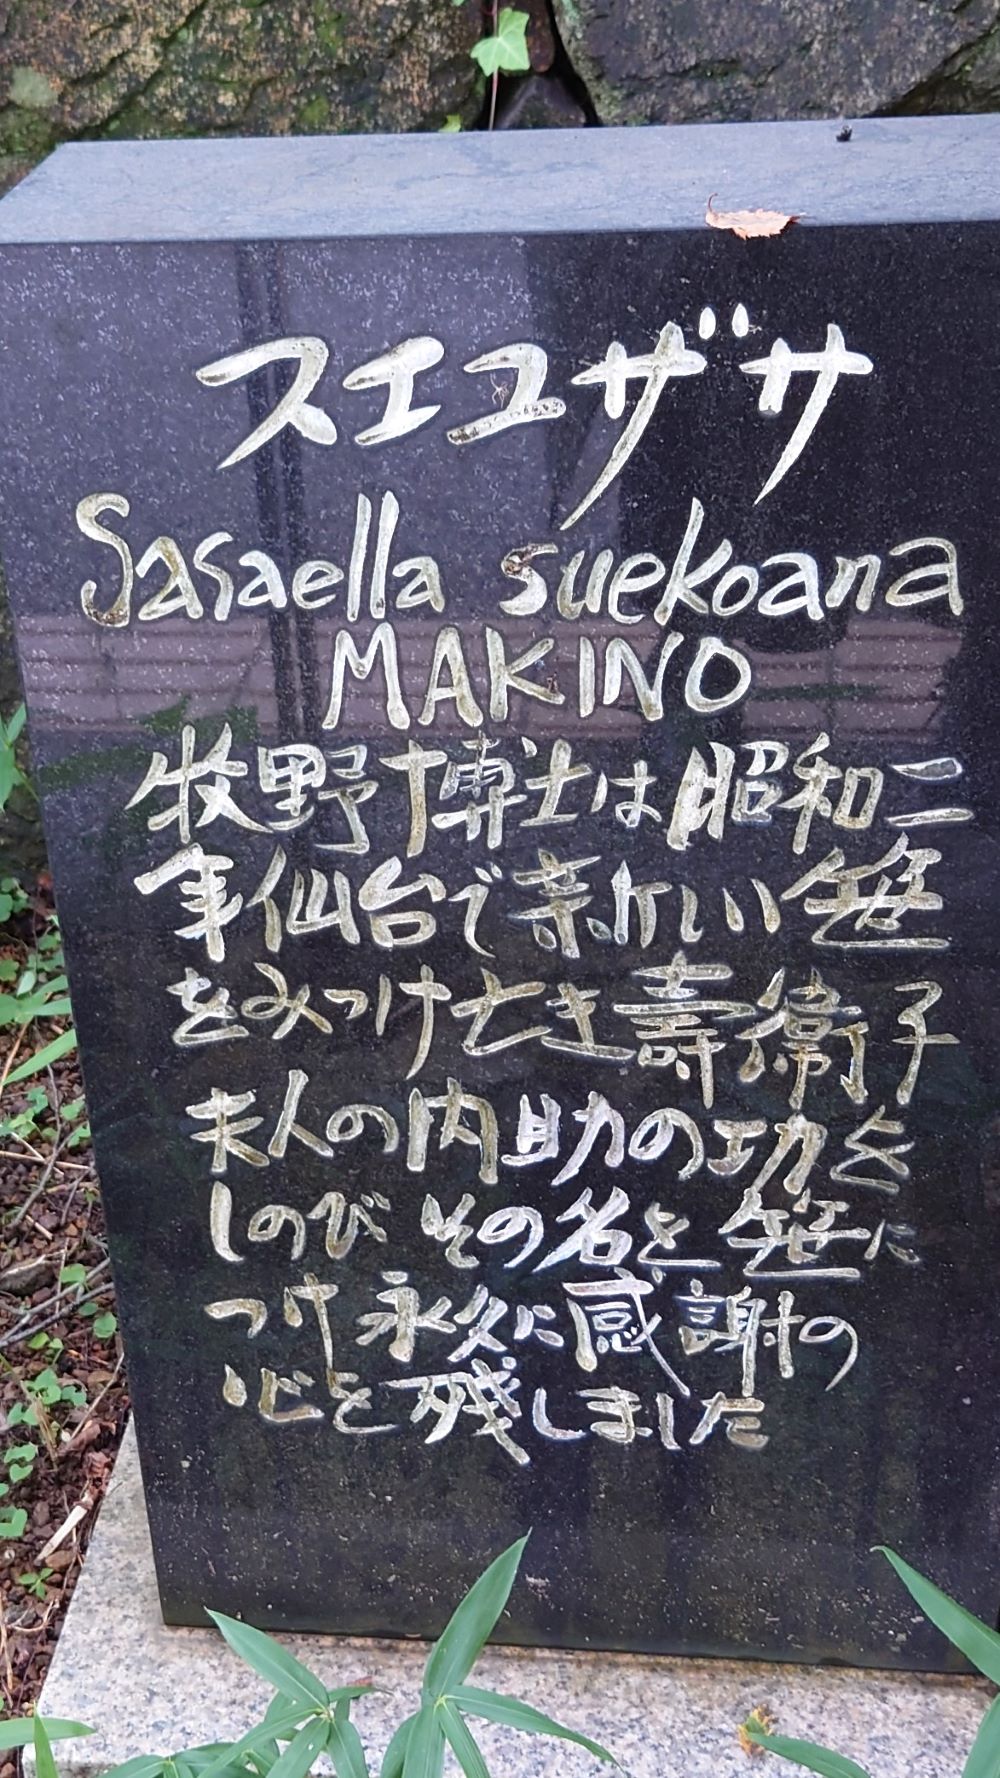 スエコザサ
Sasaella suekoana
MAKINO
牧野博士は昭和二
年仙台で新しい笹
をみつけ亡き壽衛子
夫人の内助の功を
しのびその名を笹に
つけ永久に感謝の
心を残しました